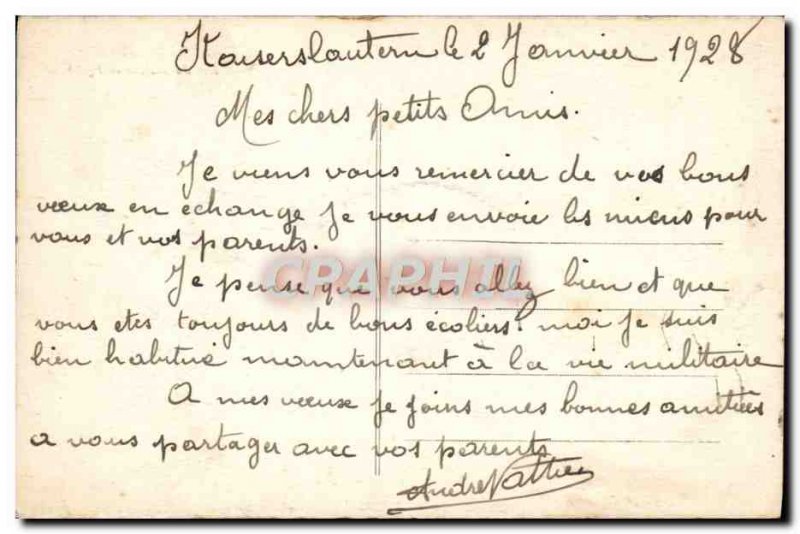 Kaiserslautern le 2 Janvier 1928
Mes chers petits Amis.
Je viens vous remercier de vos bons
vœux en echange Je vous envoie les miens pour
vous et vos parents.
CRAPHIL
Je pense que vous allez bien et que
vous etes toujours de bons écoliers. moi je suis
bien habitué maintenant à la vie militaire
A mes vœux je joins mes bonnes amitiées
a vous partager avec vos parents
André